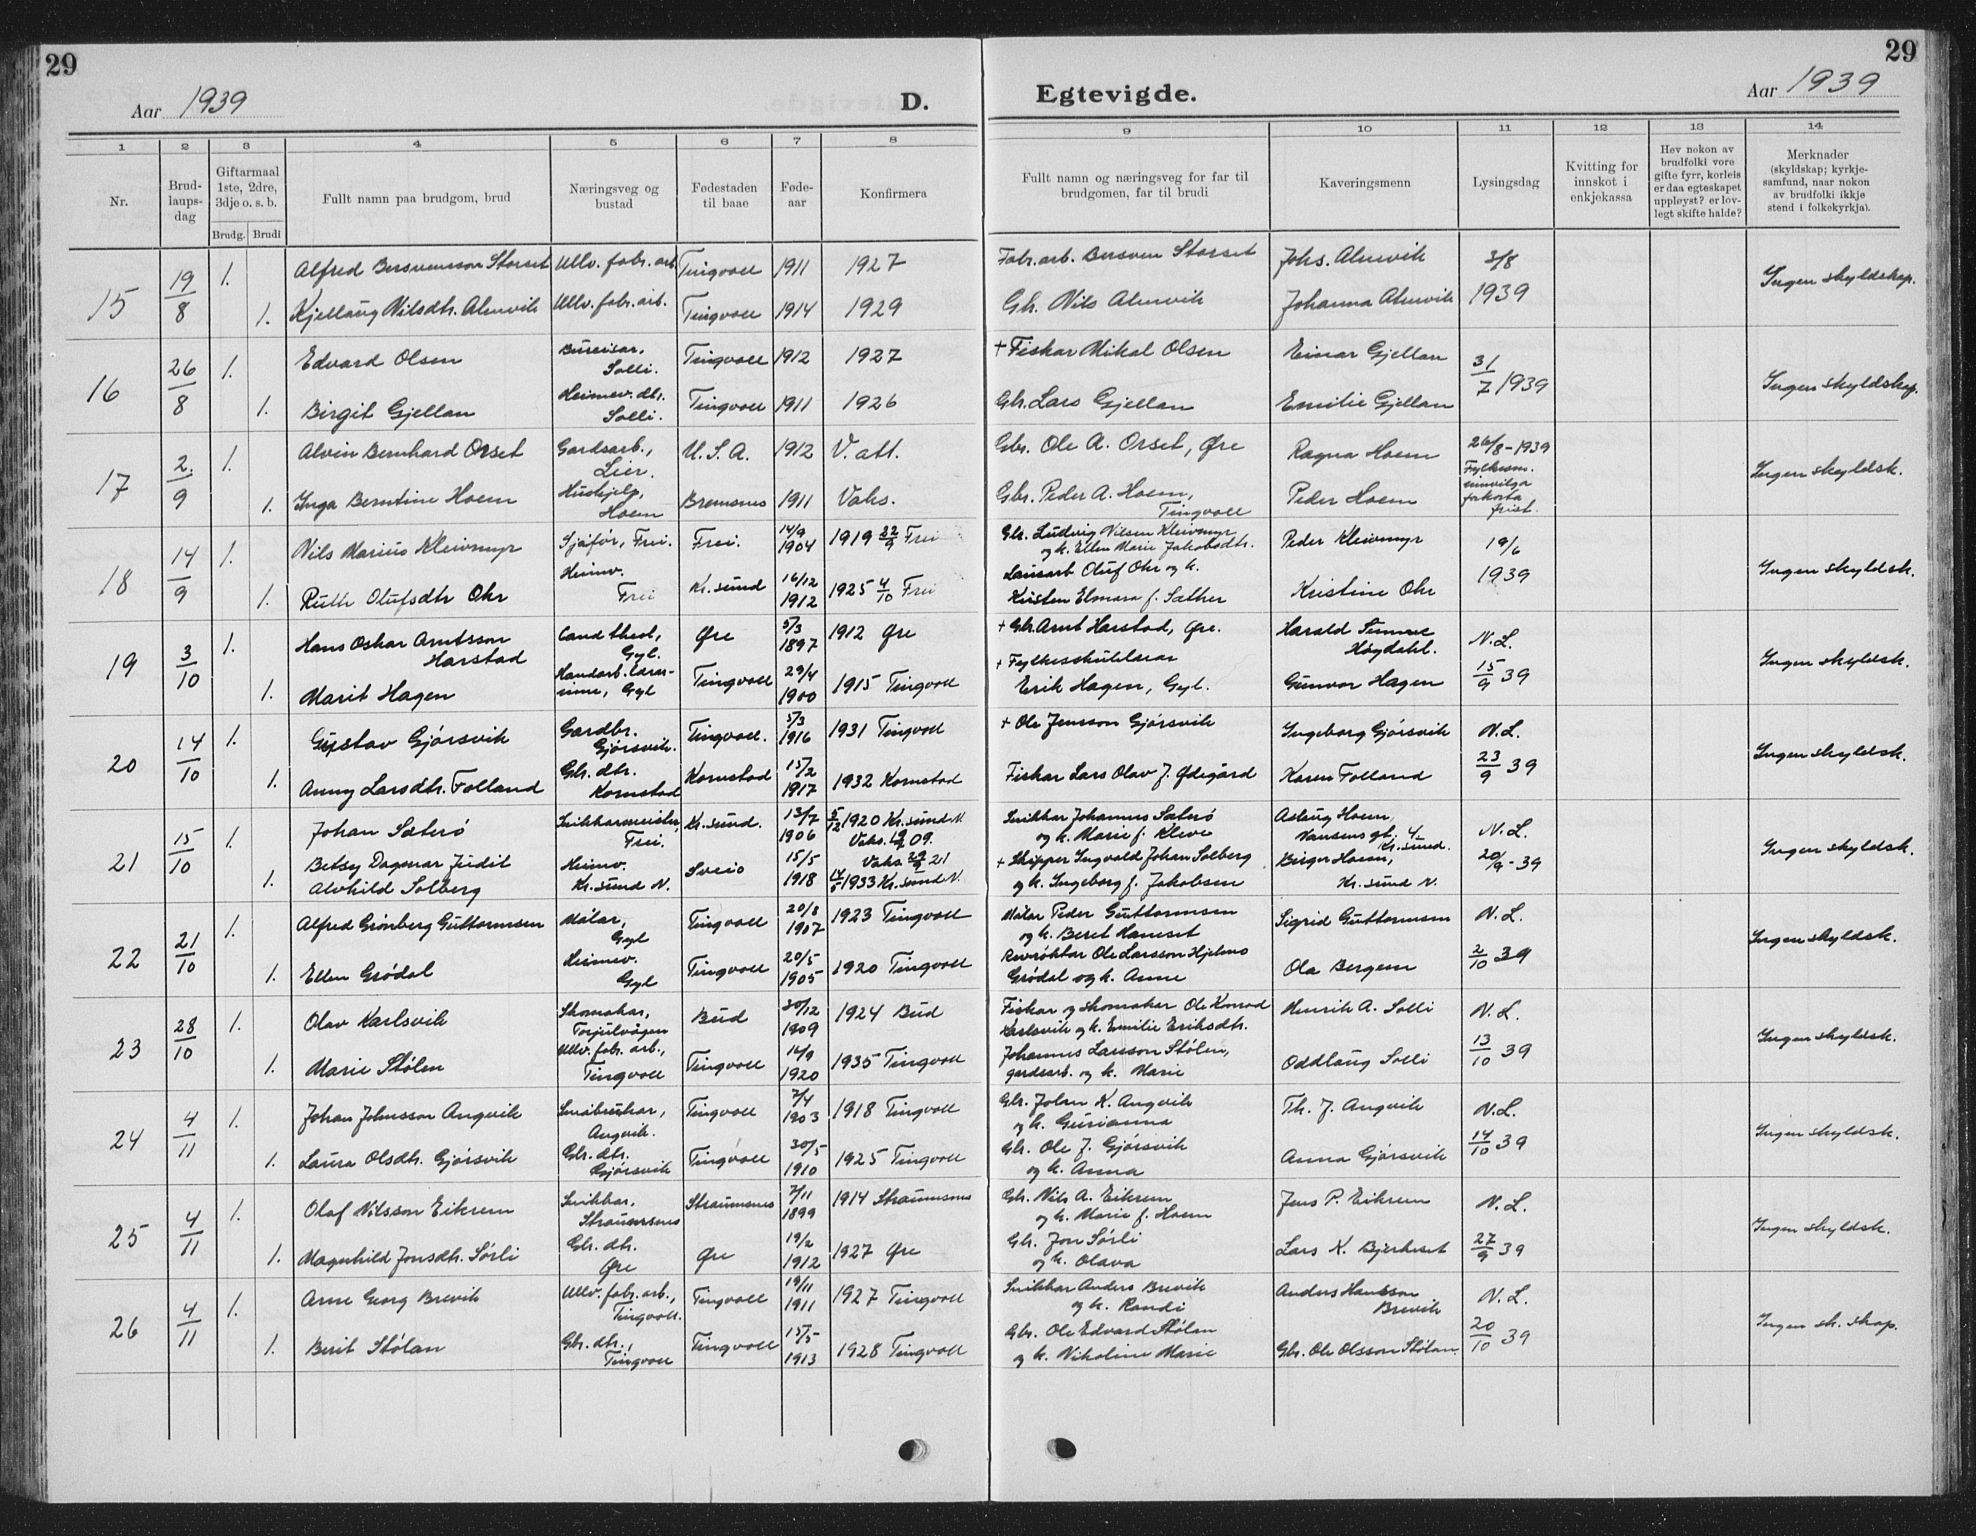 29
Aar 1939
D.
Egtevigde.
Aar 1939
29
1 2 3 4 5 6 7 8 9 10 11 12 13 14
Nr.
Brud-
laups-
dag
Giftarmaal
1ste, 2dre,
3dje o. s. b.
Brudg. Brudi
Fullt namn paa brudgom, brud
Næringsveg og
bustad
Fødestaden
til baae
Føde-
aar
Konfirmera
Fullt namn og næringsveg for far til
brudgomen, far til brudi
Kaveringsmenn
Lysingsdag
Kvitting for
innskot i
enkjekassa
Hev nokon av
brudfolki vore
gifte fyrr, korleis
er daa egteskapet
uppløyst? er lov-
legt skifte halde?
Merknader
(skyldskap; kyrkje-
samfund, naar nokon
av brudfolki ikkje
stend i folkekyrkja).
15 19/8 1. Alfred Bersvensson Storset Ullv. fabr. arb. Tingvoll 1911 1927 Fabr. arb. Bersven Storset Johs. Almvik 3/8 Ingen skyldskap.
1. Kjellaug Nilsdtr. Almvik Ullv. fabr. arb. Tingvoll 1914 1929 Gbr. Nils Almvik Johanna Almvik 1939
16 26/8 1. Edvard Olsen Bureisar, Solli. Tingvoll 1912 1927 + Fiskar Mikal Olsen Einar Gjellan 31/7 1939 Ingen skyldskap.
1. Birgit Gjellan Heimev. dtr. Solli. Tingvoll 1911 1926 Gbr. Lars Gjellan Emilie Gjellan
17 2./9 1. Alvin Bernhard Orset Gardsarb., Lier. U.S.A. 1912 V. att. Gbr. Ole A. Orset, Øre Ragna Hoem 26/8-1939 Ingen skyldsk.
1. Inga Berntine Hoem Hushjelp, Hoem Bremsnes 1911 Vaks. Gbr. Peder A. Hoem, Tingvoll Peder Hoem Fylkesm. forkorta frist.
18 14/9 1. Nils Marius Kleivmyr Sjåfør, Frei. Frei. 14/9 1904 1919 22/9 Frei Gbr. Ludvig Nilsen Kleivmyr og k. Ellen Marie Jakobsdtr. Peder Kleivmyr 19/6 1939 Ingen skyldsk.
1. Ruth Olufsdtr Ohr Heimv. Frei Kr.sund 16/12 1912 1925 4/10 Frei Lausarb Oluf Ohr og k. Kristen Elmara f. Sæther Kristine Ohr
19 3/10 1. Hans Oskar Arntsson Harstad Cand theol, Gyl. Øre 5/3 1897 1912 Øre + Gbr. Arnt Harstad, Øre. Harald Høgdahl. N.L. Ingen skyldsk.
1. Marit Hagen Handarb. lærerinne, Gyl Tingvoll 29/4 1900 1915 Tingvoll + Fylkesskulelærar Erik Hagen, Gyl. Gunvor Hagen 15/9 39
20 14/10 1. Gustav Gjørsvik Gardbr. Gjørsvik. Tingvoll. 5/3 1916 1931 Tingvoll + Ole Jensson Gjørsvik Ingeborg Gjørsvik N.L. Ingen skyldsk.
1. Anny Larsdtr. Folland Gbr. dtr. Kornstad Kornstad 15/2 1917 1932 Kornstad Fiskar Lars Olav J. Ødegård Karen Folland 23/9 39
21 15/10 1. Johan Sæterø Snikkarmeister, Frei. Kr.sund. 13/7 1906 5/12 1920 Kr.sund N. Snikkar Johannes Sæterø og k. Marie f. Kleve Aslaug Hoem, Nansens gt. 4. Kr.sund. N.L. Ingen skyldsk.
1. Betsy Dagmar Judit Alvhild Solberg Heimv. Kr.sund N. Sveio 15/5 1918 1933 Kr.sund N. + Skipper Ingvald Johan Solberg og k. Ingeborg f. Jakobsen Birger Hoem, Kr.sund N. 20/9-39
22 21/10 1. Alfred Grønberg Guttormsen Målar, Gyl Tingvoll 20/8 1907 1923 Tingvoll Målar Peder Guttormsen og k. Beret Hanset Sigrid Guttormsen N.L. Ingen skyldsk.
1. Ellen Grødal Heimev. Gyl Tingvoll 20/5 1905 1920 Tingvoll Revrøktar Ole Larsson Hjelmo Grødal og k. Anne Ola Bergem 2/10 39
23 28/10 1. Olav Karlsvik Skomakar, Torjulvågen Bud 30/12 1909 1924 Bud Fiskar og skomakar Ole Konrad Karlsvik og k. Emilie Eriksdtr. Henrik A. Solli N.L. Ingen skyldsk.
1. Marie Stølen Ullv. fabr. arb., Tingvoll Tingvoll 14/9 1920 1935 Tingvoll Johannes Larsson Stølen, gardsarb. og k. Marie Oddlaug Solli 13/10 39
24 4/11 1. Johan Johnsson Angvik Småbrukar, Angvik. Tingvoll 7/4 1903 1918 Tingvoll Gbr. John K. Angvik og k. Gurianna Th. J. Angvik N.L. Ingen skyldsk.
1. Laura Olsdtr. Gjørsvik Gbr. dtr. Gjørsvik Tingvoll 30/5 1910 1925 Tingvoll Gbr. Ole J. Gjørsvik og k. Anna Anna Gjørsvik 14/10 39
25 4/11 1. Olaf Nilsson Eikrem Snikkar, Straumsnes Straumsnes 7/11 1899 1914 Straumsnes Gbr. Nils A. Eikrem og k. Marie f. Hoem Jens P. Eikrem N.L. Ingen skyldsk.
1. Magnhild Jonsdtr. Sørli Gbr. dtr. Øre Øre 19/2 1912 1927 Øre Gbr. Jon Sørli og k. Olava Lars K. Bjerkeset 27/9 39
26 4/11 1. Arne Georg Brevik Ullv. fabr. arb., Tingvoll. Tingvoll 19/11 1911 1927 Tingvoll Snikkar Anders Brevik og k. Randi Anders Hansson Brevik N.L. Ingen sk. skap.
1. Berit Stølan Gbr. dtr., Tingvoll Tingvoll 15/5 1913 1928 Tingvoll Gbr. Ole Edvard Stølen og k. Nikoline Marie Gbr. Ole Olsson Stølan. 20/10 39